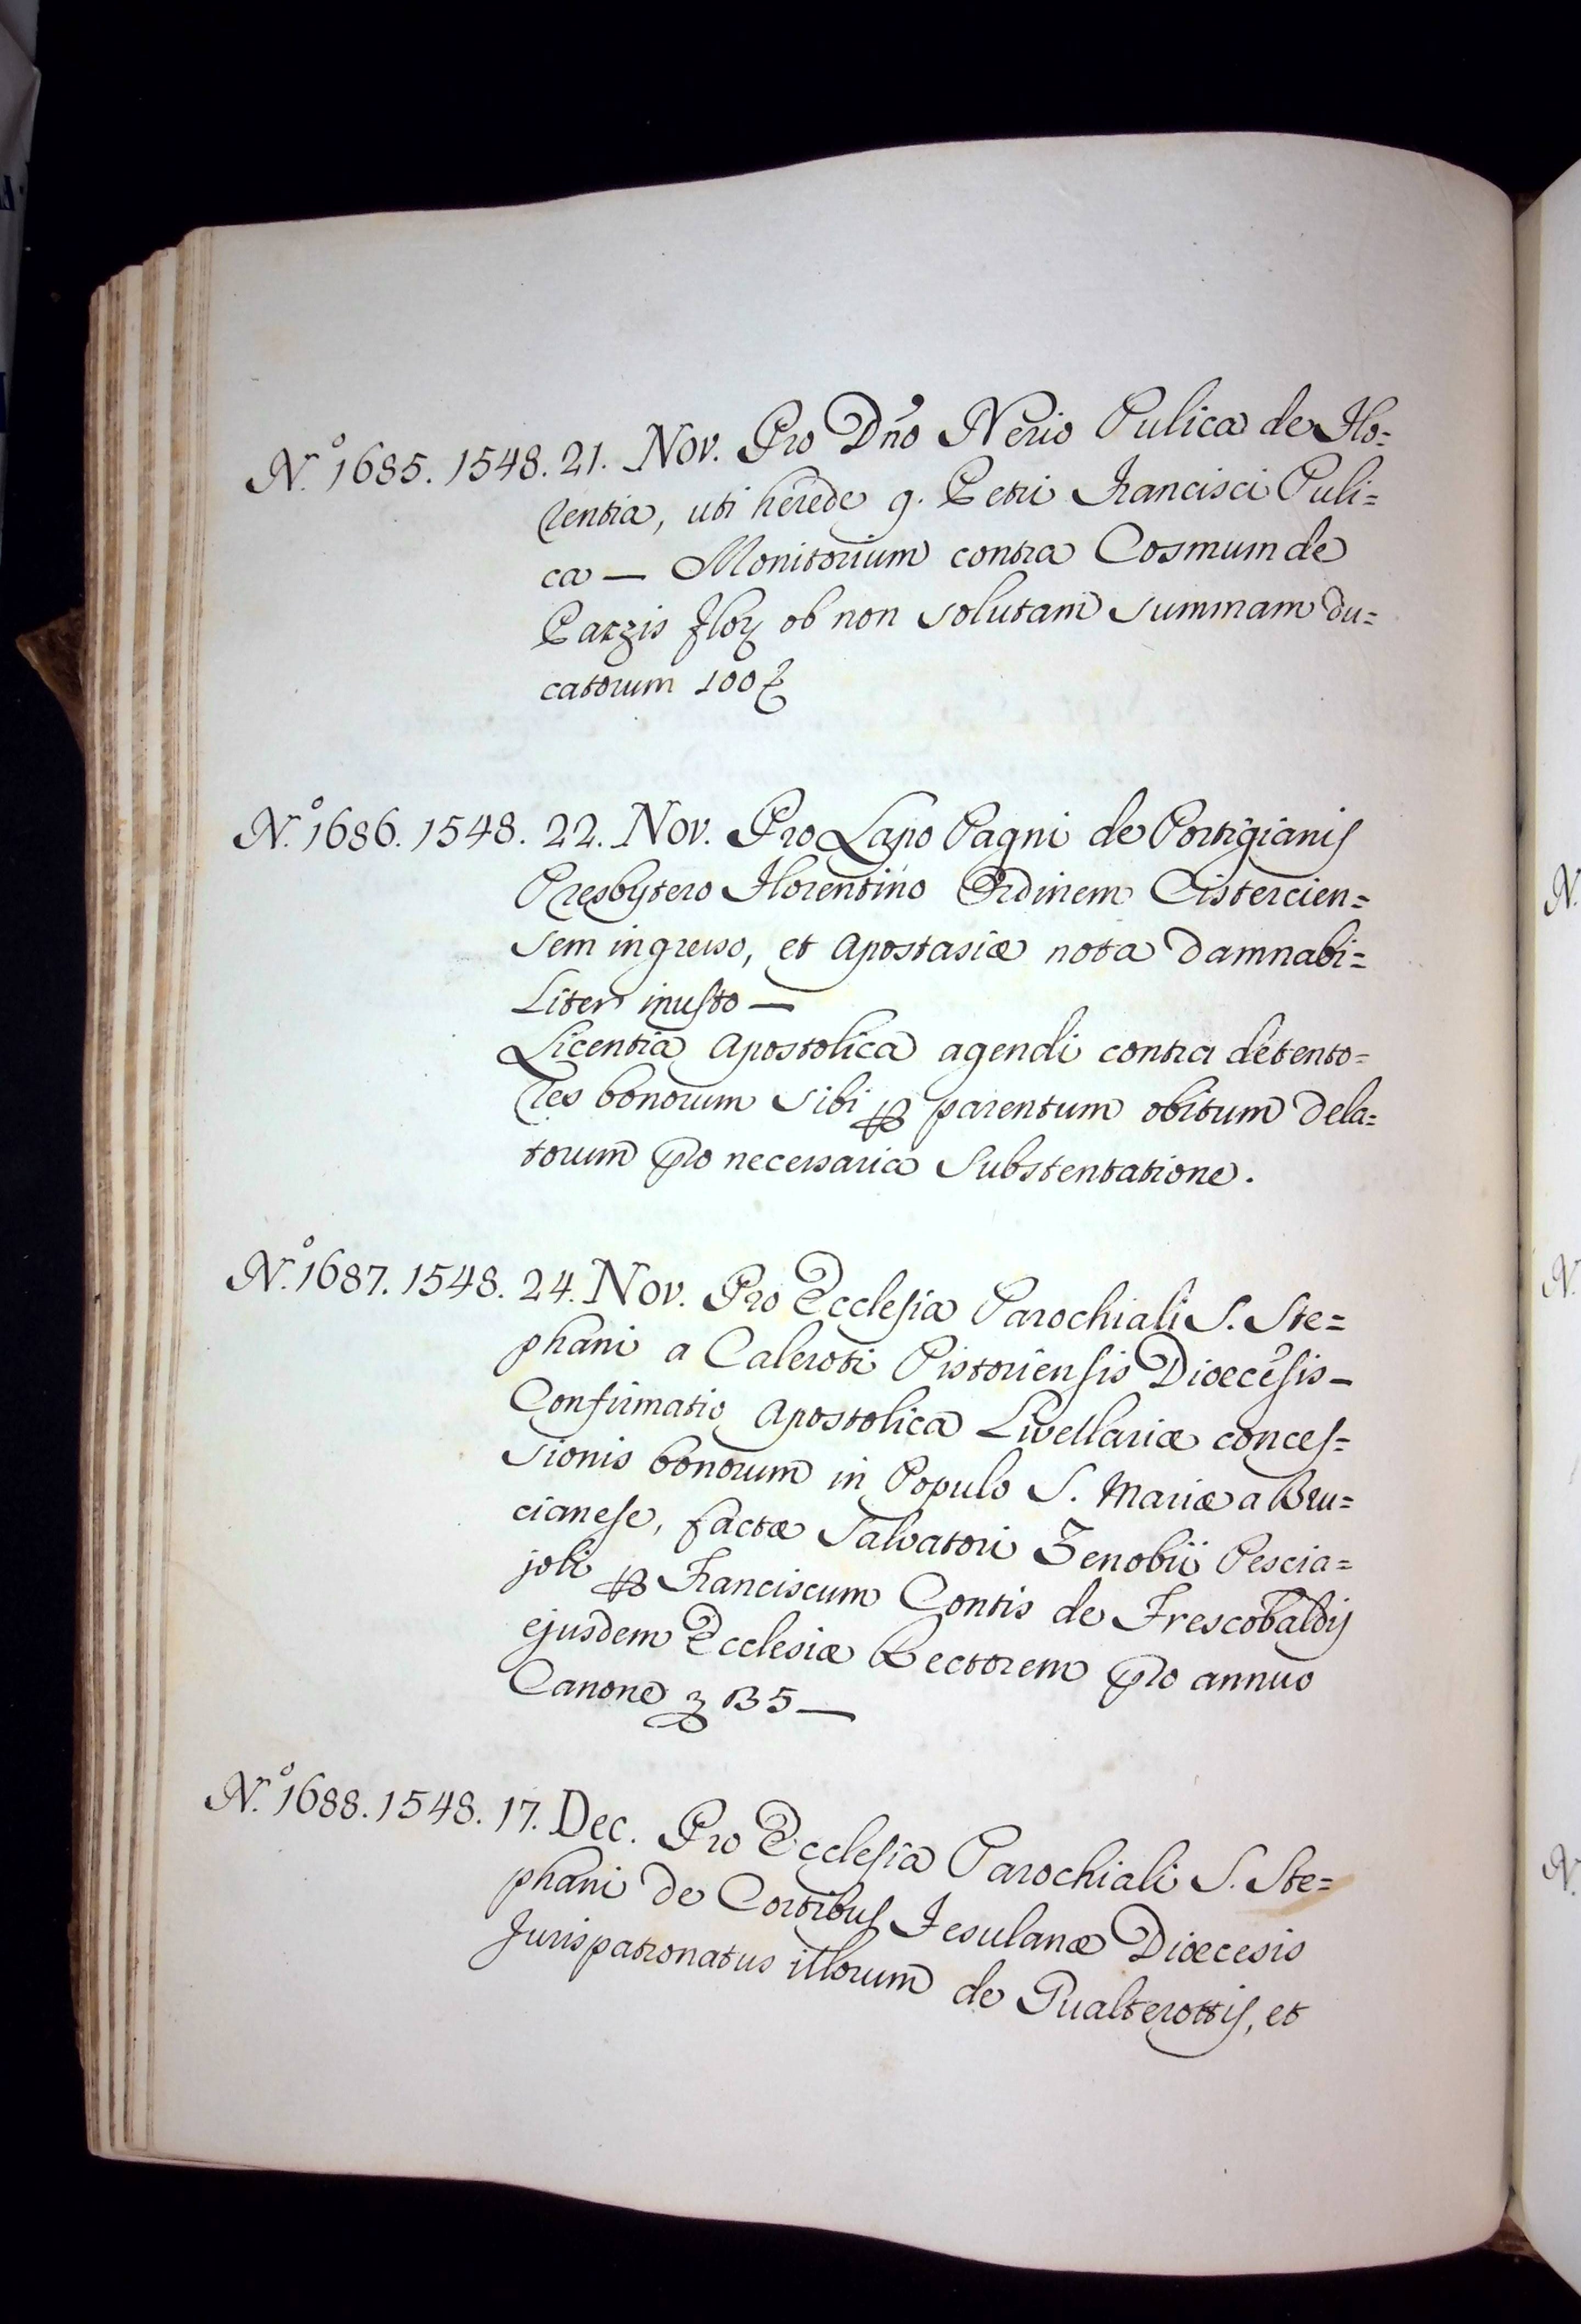 N.º 1685. 1548. 21. Nov. Pro Dño Nerio Pulica de Flo=
rentia, uti herede q. Petri Francisci Puli=
ca — Monitorium contra Cosmum de
Pazzis flor ob non solutam summam du=
catorum 100
N.º 1686. 1548. 22. Nov. Pro Lapo Pagni de Portigianis
Presbytero Florentino Ordinem Cistercien=
sem ingresso, et Apostasiæ nota damnabi=
liter inusto —
Licentia Apostolica agendi contra detento=
res bonorum sibi ꝑ parentum obitum dela=
torum pro necessaria substentatione.
N.º 1687. 1548. 24. Nov. Pro Ecclesia Parochiali S. Ste=
phani a Caleroti Pistoriensis Dioecesis —
Confirmatio Apostolica Livellariæ conces=
sionis bonorum in Populo S. Mariæ a Bru=
cianese, factæ Salvatori Zenobii Pescia=
joli ꝑ Franciscum Contis de Frescobaldis
ejusdem Ecclesiæ Rectorem pro annuo
Canone 35 —
N.º 1688. 1548. 17. Dec. Pro Ecclesia Parochiali S. Ste=
phani de Cortibus Fesulanæ Dioecesis
Jurispatronatus illorum de Gualterottis, et
N.
N.
N.